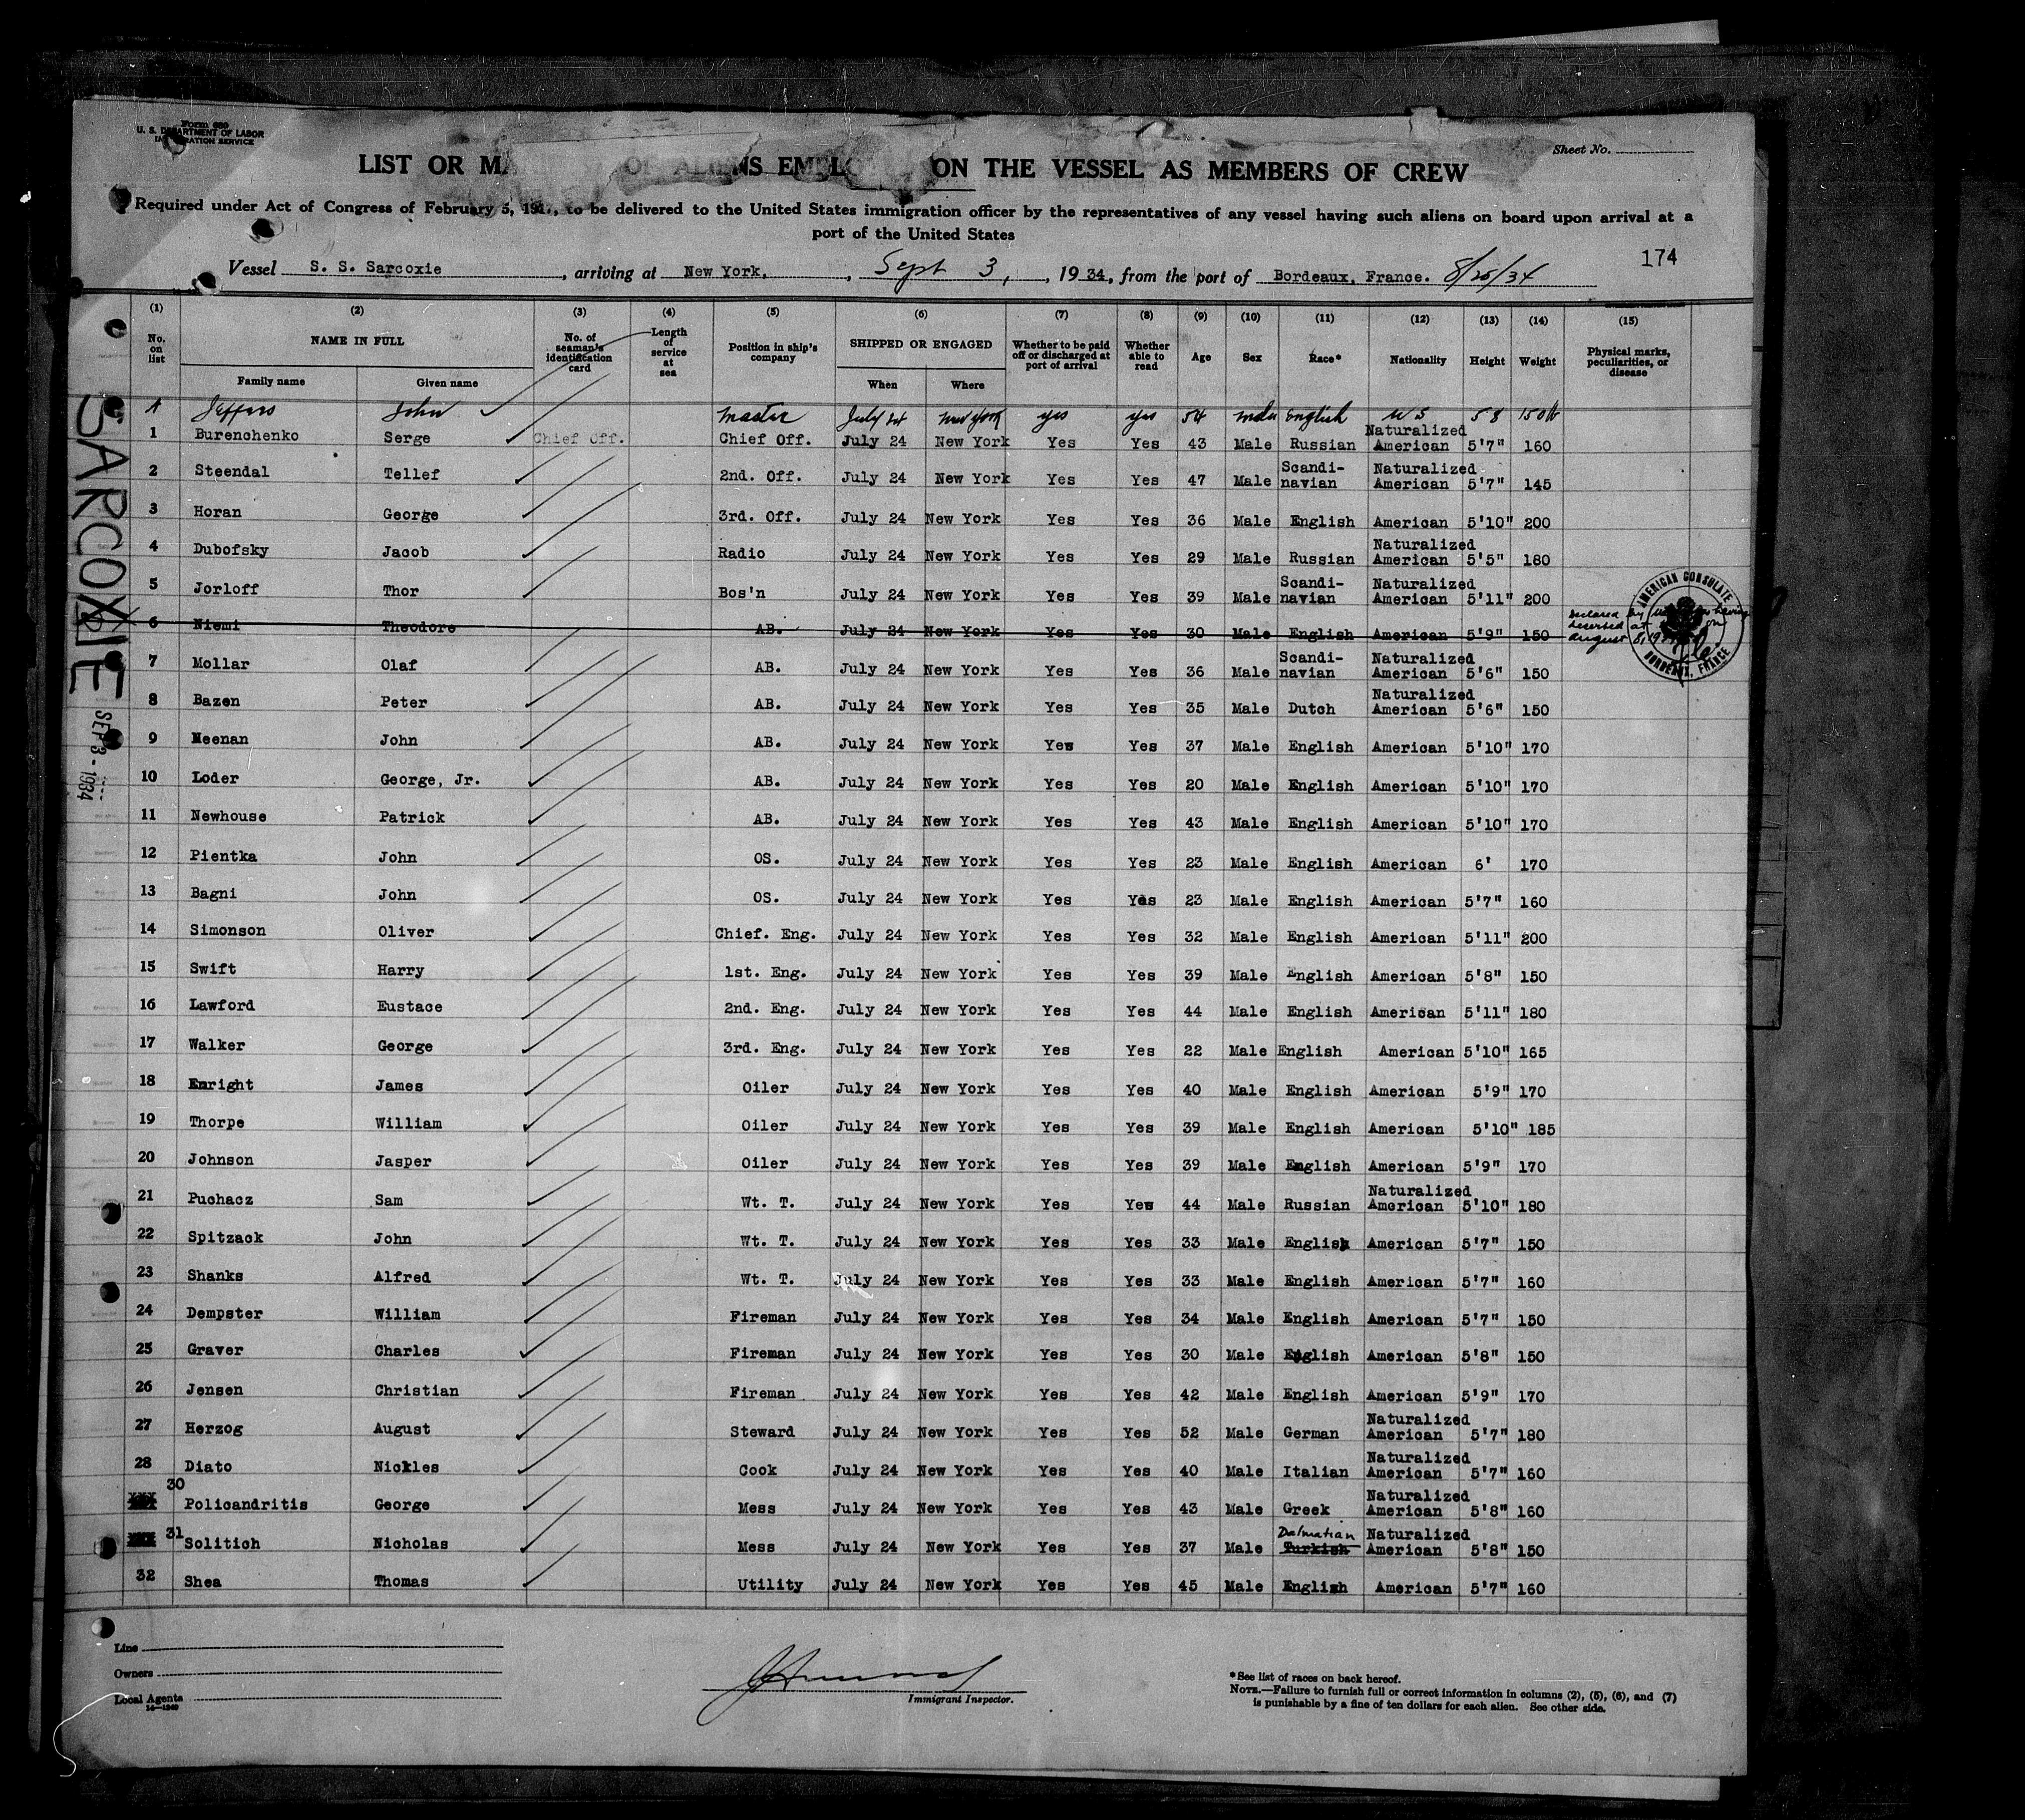 Form 689
U. S. DEPARTMENT OF LABOR
IMMIGRATION SERVICE
Sheet No.
LIST OR MA OF ALIENS EMPLO ON THE VESSEL AS MEMBERS OF CREW
Required under Act of Congress of February 5, 1917, to be delivered to the United States immigration officer by the representatives of any vessel having such aliens on board upon arrival at a
port of the United States
174
Vessel S. S. Sarcoxie, arriving at New York, Sept 3, 1934, from the port of Bordeaux, France. 8/25/34
(1) (2) (3) (4) (5) (6) (7) (8) (9) (10) (11) (12) (13) (14) (15)
No. on list NAME IN FULL Family name Given name No. of seaman's identification card Length of service at sea Position in ship's company SHIPPED OR ENGAGED When Where Whether to be paid off or discharged at port of arrival Whether able to read Age Sex Race* Nationality Height Weight Physical marks, peculiarities, or disease
1 Jeffers John Master July 24 New York yes yes 54 male English U S 5 8 150 lb
1 Burenchenko Serge Chief Off. Chief Off. July 24 New York Yes Yes 43 Male Russian Naturalized American 5'7" 160
2 Steendal Tellef 2nd. Off. July 24 New York Yes Yes 47 Male Scandi-navian Naturalized American 5'7" 145
3 Horan George 3rd. Off. July 24 New York Yes Yes 36 Male English American 5'10" 200
4 Dubofsky Jacob Radio July 24 New York Yes Yes 29 Male Russian Naturalized American 5'5" 180
5 Jorloff Thor Bos'n July 24 New York Yes Yes 39 Male Scandi-navian Naturalized American 5'11" 200
6 Niemi Theodore AB. July 24 New York Yes Yes 30 Male English American 5'9" 150 Declared by as having deserted at on August 8, 19
AMERICAN CONSULATE
BORDEAUX, FRANCE
7 Mollar Olaf AB. July 24 New York Yes Yes 36 Male Scandi-navian Naturalized American 5'6" 150
8 Bazen Peter AB. July 24 New York Yes Yes 35 Male Dutch Naturalized American 5'6" 150
9 Neenan John AB. July 24 New York Yes Yes 37 Male English American 5'10" 170
10 Loder George, Jr. AB. July 24 New York Yes Yes 20 Male English American 5'10" 170
11 Newhouse Patrick AB. July 24 New York Yes Yes 43 Male English American 5'10" 170
12 Pientka John OS. July 24 New York Yes Yes 23 Male English American 6' 170
13 Bagni John OS. July 24 New York Yes Yes 23 Male English American 5'7" 160
14 Simonson Oliver Chief. Eng. July 24 New York Yes Yes 32 Male English American 5'11" 200
15 Swift Harry 1st. Eng. July 24 New York Yes Yes 39 Male English American 5'8" 150
16 Lawford Eustace 2nd. Eng. July 24 New York Yes Yes 44 Male English American 5'11" 180
17 Walker George 3rd. Eng. July 24 New York Yes Yes 22 Male English American 5'10" 165
18 Enright James Oiler July 24 New York Yes Yes 40 Male English American 5'9" 170
19 Thorpe William Oiler July 24 New York Yes Yes 39 Male English American 5'10" 185
20 Johnson Jasper Oiler July 24 New York Yes Yes 39 Male English American 5'9" 170
21 Puchacz Sam Wt. T. July 24 New York Yes Yes 44 Male Russian Naturalized American 5'10" 180
22 Spitzack John Wt. T. July 24 New York Yes Yes 33 Male English American 5'7" 150
23 Shanks Alfred Wt. T. July 24 New York Yes Yes 33 Male English American 5'7" 160
24 Dempster William Fireman July 24 New York Yes Yes 34 Male English American 5'7" 150
25 Graver Charles Fireman July 24 New York Yes Yes 30 Male English American 5'8" 150
26 Jensen Christian Fireman July 24 New York Yes Yes 42 Male English American 5'9" 170
27 Herzog August Steward July 24 New York Yes Yes 52 Male German Naturalized American 5'7" 180
28 Diato Nickles Cook July 24 New York Yes Yes 40 Male Italian Naturalized American 5'7" 160
30 Policandritis George Mess July 24 New York Yes Yes 43 Male Greek Naturalized American 5'8" 160
31 Solitich Nicholas Mess July 24 New York Yes Yes 37 Male Dalmatian Turkish Naturalized American 5'8" 150
32 Shea Thomas Utility July 24 New York Yes Yes 45 Male English American 5'7" 160
SARCOXIE
SEP 3 - 1934
Line
Owners
Local Agents
14—1240
Immigrant Inspector.
*See list of races on back hereof.
NOTE.—Failure to furnish full or correct information in columns (2), (5), (6), and (7)
is punishable by a fine of ten dollars for each alien. See other side.